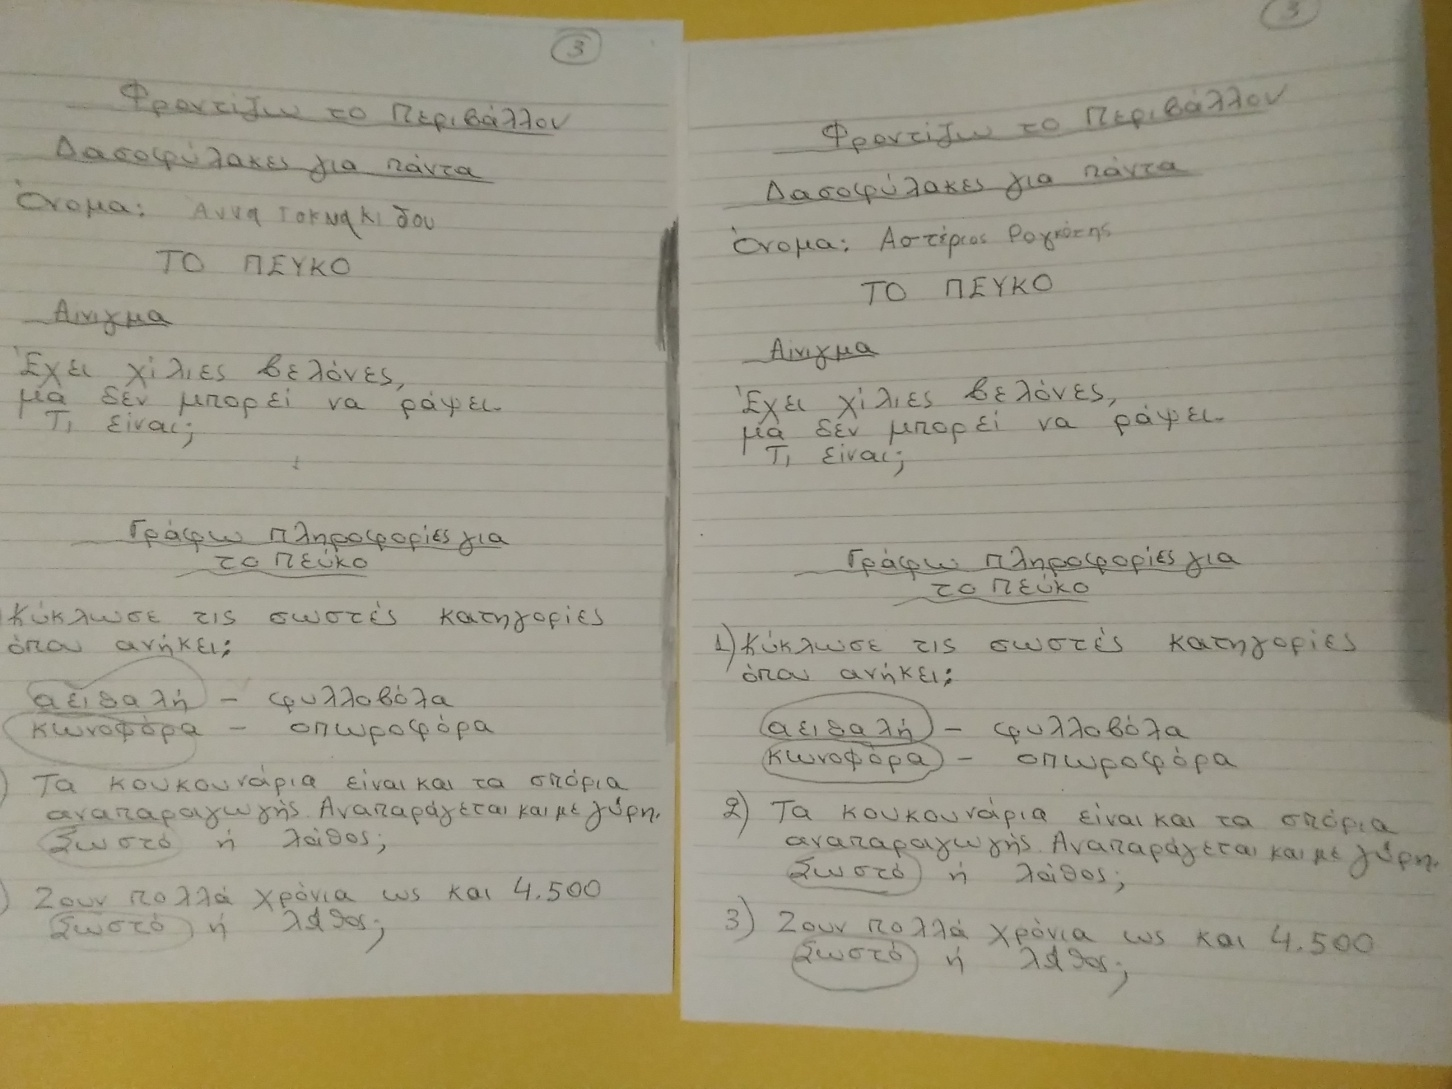 3
Φροντίζω το Περιβάλλον
Δασοφύλακες για πάντα
Όνομα: Αννα Τοκμακίδου
ΤΟ ΠΕΥΚΟ
Αινιγμα
Έχει χίλιες βελόνες,
μα δεν μπορεί να ράψει.
Τι είναι;
Γράφω πληροφορίες για
το πεύκο
Κύκλωσε τις σωστές κατηγορίες
όπου ανήκει;
αειθαλή - φυλλοβόλα
κωνοφόρα - οπωροφόρα
) Τα κουκουνάρια είναι και τα σπόρια
αναπαραγωγής. Αναπαράγεται και με γύρη.
Σωστό ή λάθος;
) Ζουν πολλά χρόνια ως και 4.500
Σωστό ή λάθος;
3
Φροντίζω το Περιβάλλον
Δασοφύλακες για πάντα
Όνομα: Αστέριος
ΤΟ ΠΕΥΚΟ
Αίνιγμα
Έχει χίλιες βελόνες,
μα δεν μπορεί να ράψει.
Τι είναι;
Γράφω πληροφορίες για
το πεύκο
1) Κύκλωσε τις σωστές κατηγορίες
όπου ανήκει;
αειθαλή - φυλλοβόλα
κωνοφόρα - οπωροφόρα
2) Τα κουκουνάρια είναι και τα σπόρια
αναπαραγωγής. Αναπαράγεται και με γύρη.
Σωστό ή λάθος;
3) Ζουν πολλά χρόνια ως και 4.500
Σωστό ή λάθος;